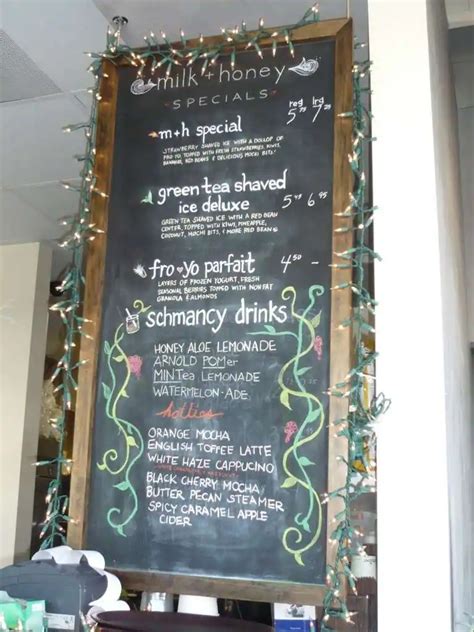 milk + honey
SPECIALS
reg lrg
m+h special 5.75 7.25
STRAWBERRY SHAVED ICE WITH A DOLLOP OF
FRO YO, TOPPED WITH FRESH STRAWBERRIES, KIWIS,
BANANAS, RED BEANS & DELICIOUS MOCHI BITS!
green tea shaved
ice deluxe 5.45 6.95
GREEN TEA SHAVED ICE WITH A RED BEAN
CENTER, TOPPED WITH KIWI, PINEAPPLE,
COCONUT, MOCHI BITS, & MORE RED BEAN
fro-yo parfait 4.50 -
LAYERS OF FROZEN YOGURT, FRESH
SEASONAL BERRIES TOPPED WITH NON FAT
GRANOLA & ALMONDS
schmancy drinks
HONEY ALOE LEMONADE
ARNOLD POMer
MINTea LEMONADE
WATERMELON-ADE
hotties
ORANGE MOCHA
ENGLISH TOFFEE LATTE
WHITE HAZE CAPPUCINO
BLACK CHERRY MOCHA
BUTTER PECAN STEAMER
SPICY CARAMEL APPLE
CIDER